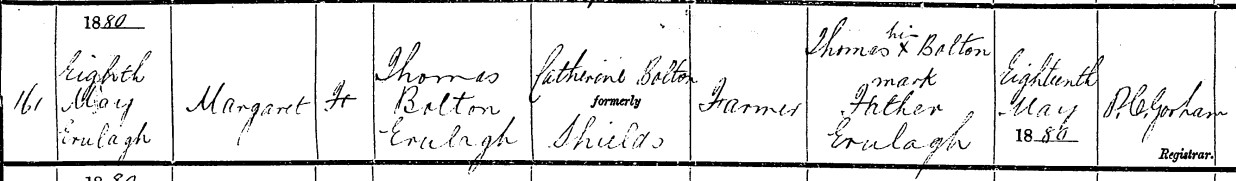 1880
161
Eighth
May
Erulagh
Margaret
F
Thomas
Bolton
Erulagh
Catherine Bolton
formerly
Shields
Farmer
his
Thomas X Bolton
mark
Father
Erulagh
Eighteenth
May
1880
P.C. Gorham
Registrar.
1880